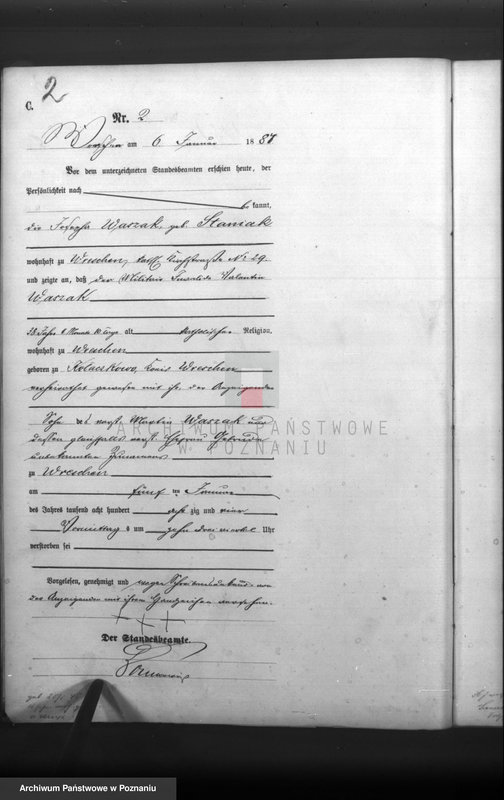 2
C.
Nr. 2
Wreschen am 6 Januar 188
Vor dem unterzeichneten Standesbeamten erschien heute, der
Persönlichkeit nach
be kannt,
die Josepha Warzak, geb. Staniak
wohnhaft zu Wreschen, No 29.
und zeigte an, daß der Militair Invalide Valentin
Warzak
alt katholischer Religion,
wohnhaft zu Wreschen
geboren zu Kołaczkowo, Kreis Wreschen
verheirathet gewesen mit ihr, der Anzeigenden
Sohn des Martin Warzak und
dessen gleichfalls Ehefrau
unbekannten Zunamens
zu Wreschen
am fünf ten Januar
des Jahres tausend acht hundert acht zig und
Vormittag s um zehn drei viertel Uhr
verstorben sei
Vorgelesen, genehmigt und wegen Schreibensunkunde von
der Anzeigenden mit ihrem Handzeichen versehen.
+++
Der Standesbeamte.
ARCHIWUM PAŃSTWOWE
W POZNANIU
Archiwum Państwowe w Poznaniu